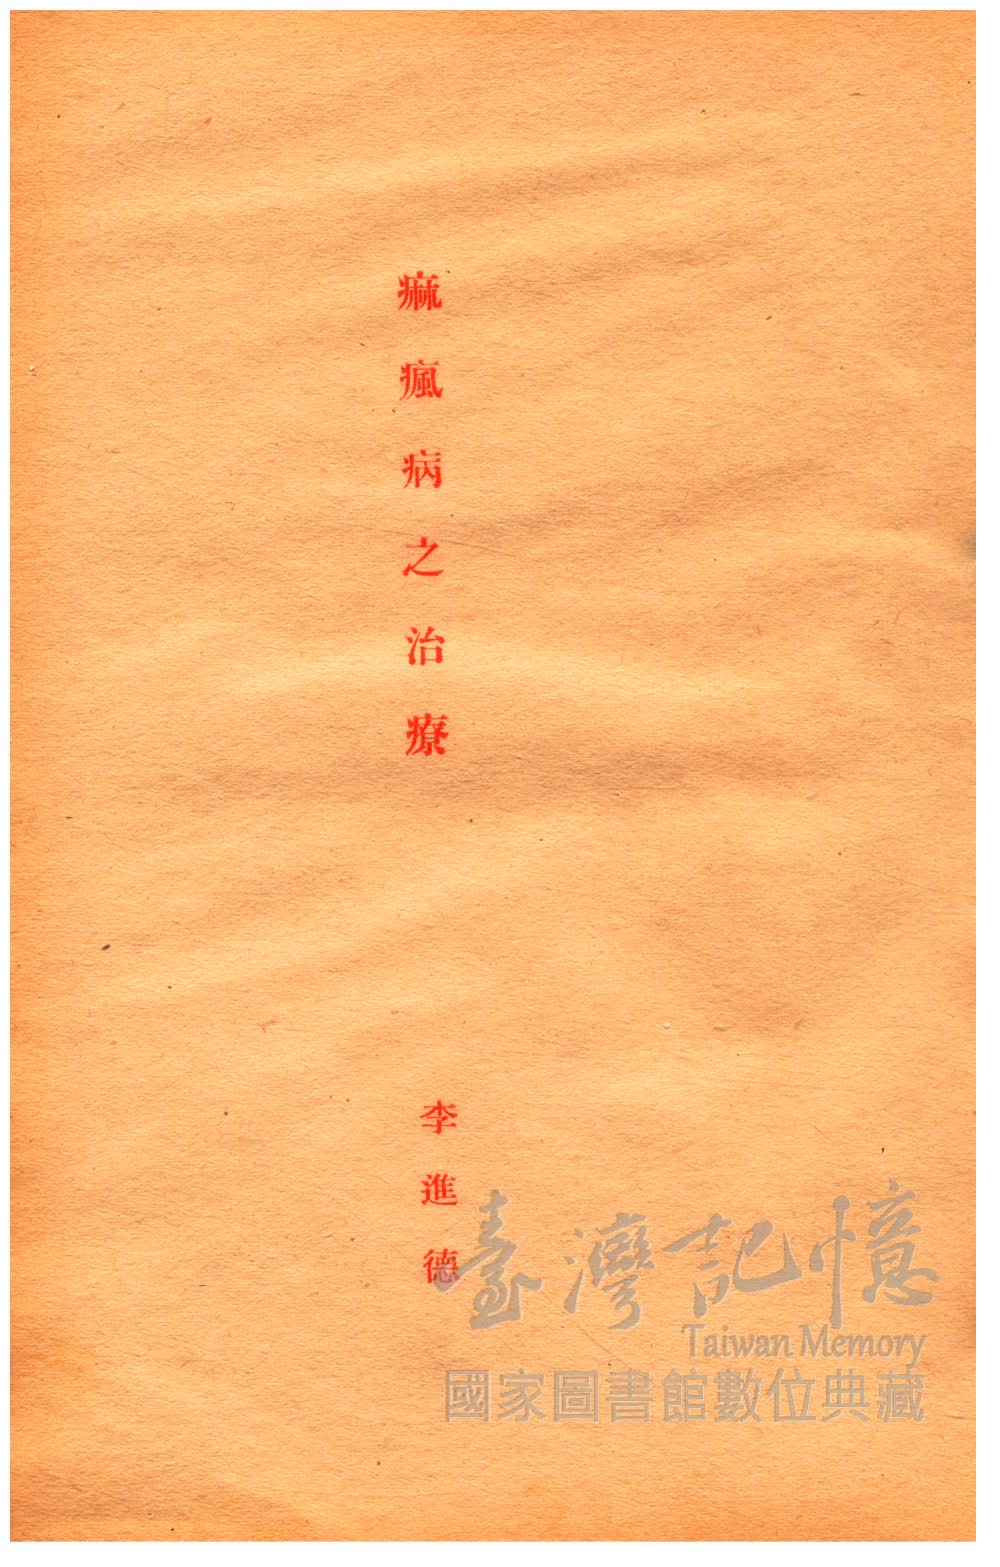 痲瘋病之治療
李進德
臺灣記憶
Taiwan Memory
國家圖書館數位典藏